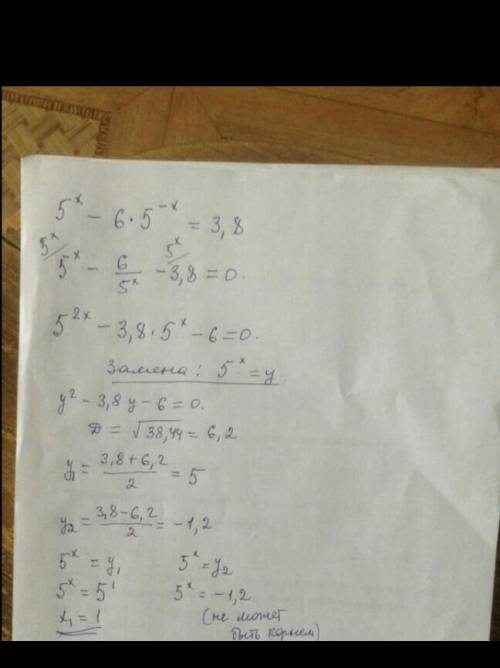 5^x − 6 · 5^−x = 3,8
5^x/ 5^x − 6/5^x 5^x/ − 3,8 = 0.
5^2x − 3,8 · 5^x − 6 = 0.
Замена: 5^x = y
y² − 3,8 y − 6 = 0.
Д = √38,44 = 6,2
y₁ = (3,8 + 6,2)/2 = 5
y₂ = (3,8 − 6,2)/2 = −1,2
5^x = y₁ 5^x = y₂
5^x = 5^1 5^x = −1,2
x₁ = 1 (не может
быть корнем)